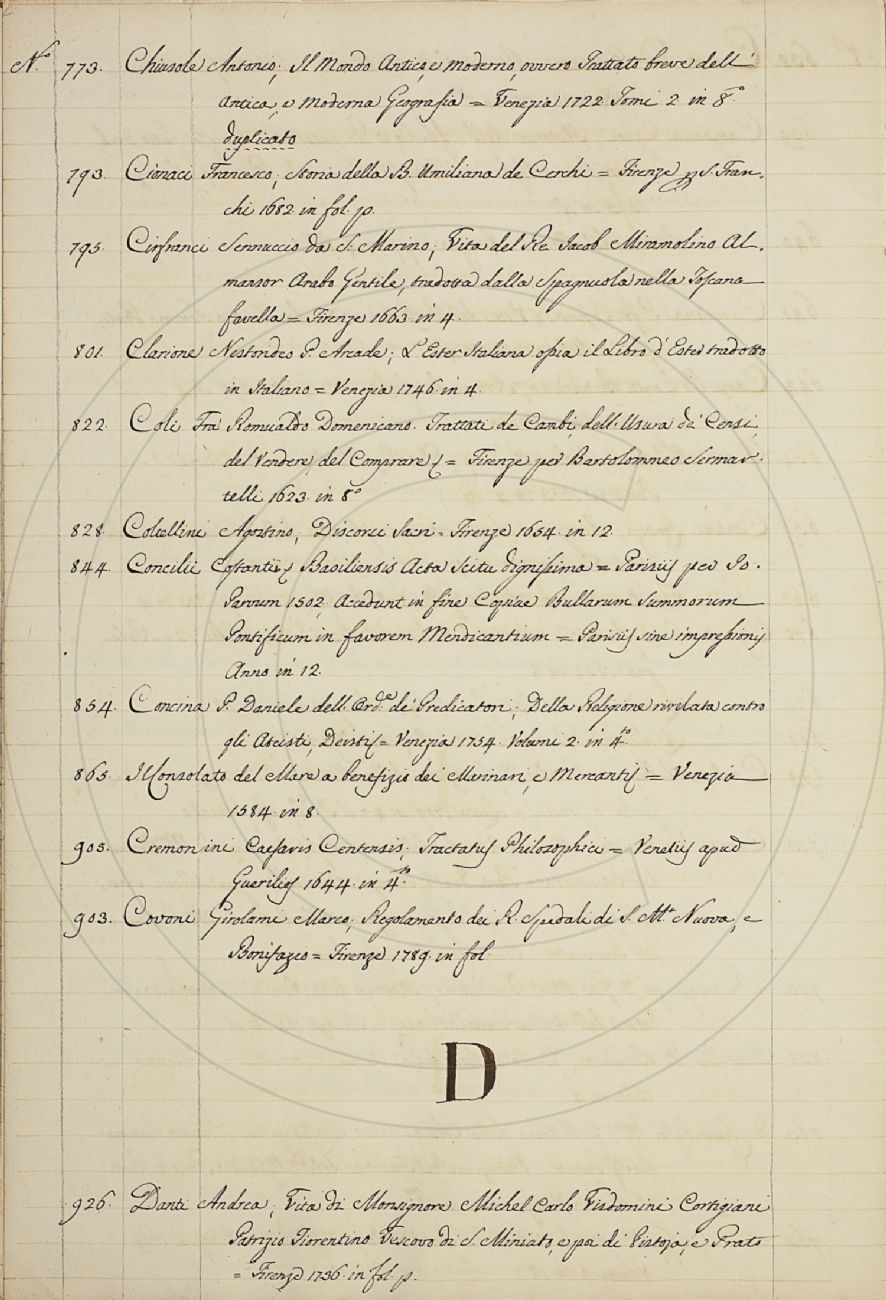 N.º 773. Chiusole Antonio; Il Mondo Antico, e moderno, ovvero Trattato breve dell'
Antica, e Moderna Geografia = Venezia 1722 Tomi 2 in 8º
duplicato
793. Cionaci Francesco; Storia della B. Umiliana de Cerchi = Firenze p S. Fran-
chi 1682 in fol. p.
795. Cirfranci Sennuccio da S. Marino; Vita del Re Jacob Miramolino Al-
mansor Arabo Gentile, tradotta dalla Spagnuola nella Toscana
favella = Firenze 1663 in 4.
801. Clarione Nestorideo P. Arcade; L'Ester Italiana ossia il Libro d'Ester tradotto
in Italiano = Venezia 1746 in 4.
822. Coli Fra Romualdo Domenicano. Trattati de Cambi, dell'Usura de' Censi,
del Vendere, del Comprare = Firenze per Bartolommeo Sermar-
telli 1623 in 8º
828. Coltellini Agostino, Discorsi Sacri = Firenze 1654 in 12
844. Concilii Basiliensis Acta Scitu dignissima = Parisiis per Jo.
Parvum 1502, Accedunt in fine Copiae Bullarum Summorum
Pontificum in favorem Mendicantium = Parisiis sine impressionis
Anno in 12.
854. Concina P. Daniele dell'Ord.e de' Predicatori; Della Religione rivelata contro
gli Ateisti, Deisti = Venezia 1754 Volumi 2 in 4to
865. Il Consolato del Mare a benefizio dei Marinari, e Mercanti = Venezia
1584 in 8.
905. Cremonini Caesaris Centensis; Tractatus Philosophici = Venetiis apud
Guerilios 1644 in 4to
903. Covoni Girolami Marco; Regolamento dei R. Spedali di S. Mª Nuova, e
Bonifazio = Firenze 1789 in fol
D
926. Danti Andrea; Vita di Monsignore Michel Carlo Visdomini Cortigiani
Patrizio Fiorentino Vescovo di S. Miniato, e poi di Pistoja, e Prato
= Firenze 1736 in fol. p.